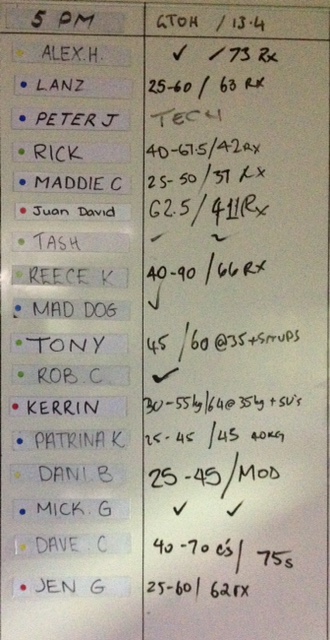 5 PM GTOH / 13.4
ALEX.H. ✓ / 73 Rx
LANZ 25-60 / 63 Rx
PETER J TECH
RICK 40-67.5/42Rx
MADDIE C 25-50/37 Rx
Juan David 62.5/411Rx
TASH
REECE K 40-90/66 RX
MAD DOG ✓
TONY 45 / 60 @35+SITUPS
ROB.C ✓
KERRIN 30-55kg/64@35kg + SU's
PATRINA K 25-45 / 45 40KG
DANI.B 25-45/MOD
MICK.G ✓ ✓
DAVE.C 40-70 c's/ 75s
JEN G 25-60/ 62rx